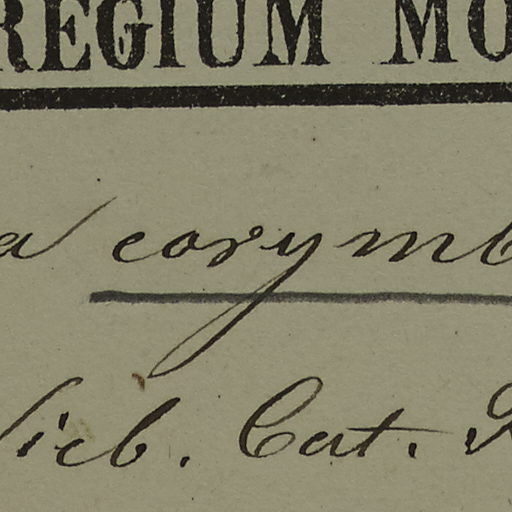 REGIUM MO
a corymb
Sieb. Cat.